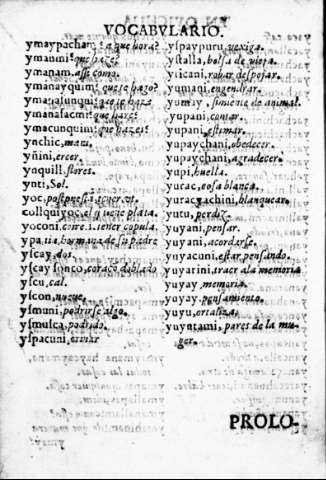 VOCABVLARIO.
ymaypacham? a que hora?
ymanini? que haze?
ymanam, asse como.
ymanayquim? que te hago?
ymanasunqui? que te haze
que haré?
ymacunquim? que hazes?
ynchic, mani.
yñini, creer.
ynquill, flores.
ynti, Sol.
yoc,
collquiyoc, el que tiene plata.
yoconi, tener copula.
hermana de su padre
yscay, dos.
yscay sonco, coraçõ doblado
yscu, cal.
yscon, nueue.
ysmuni, podrirse algo.
ysmusca, podrido.
yspacuni, orinar
yspaypuru, vexiga.
ystalla, bolsa de vieja.
yticani, rabar despojar.
yumani, engendrar.
yumay, simiente de animal.
yupani, contar.
yupani, estimar.
yupaychani, obedecer.
yupaychani, agradecer.
yupi, huella.
yurac, cosa blanca.
yurac yachini, blanquear.
yutu, perdiz.
yuyani, pensar.
yuyani, acordarse.
ynyacuni, estar pensando.
yuyarini, traer ala memoria
yuyay, memoria.
yuyay, pensamiento.
yuyu, ortaliza.
pares de la mu-
ger.
PROLO-